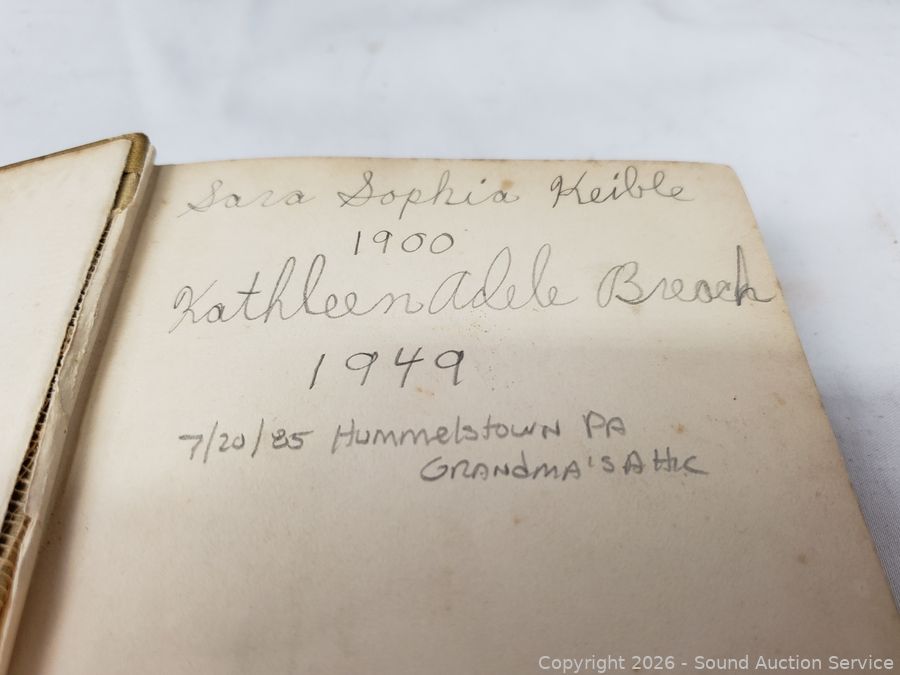 Sara Sophia Keible
1900
Kathleen Adele Breach
1949
7/20/85 Hummelstown PA
Grandma's Attic
Copyright 2026 - Sound Auction Service